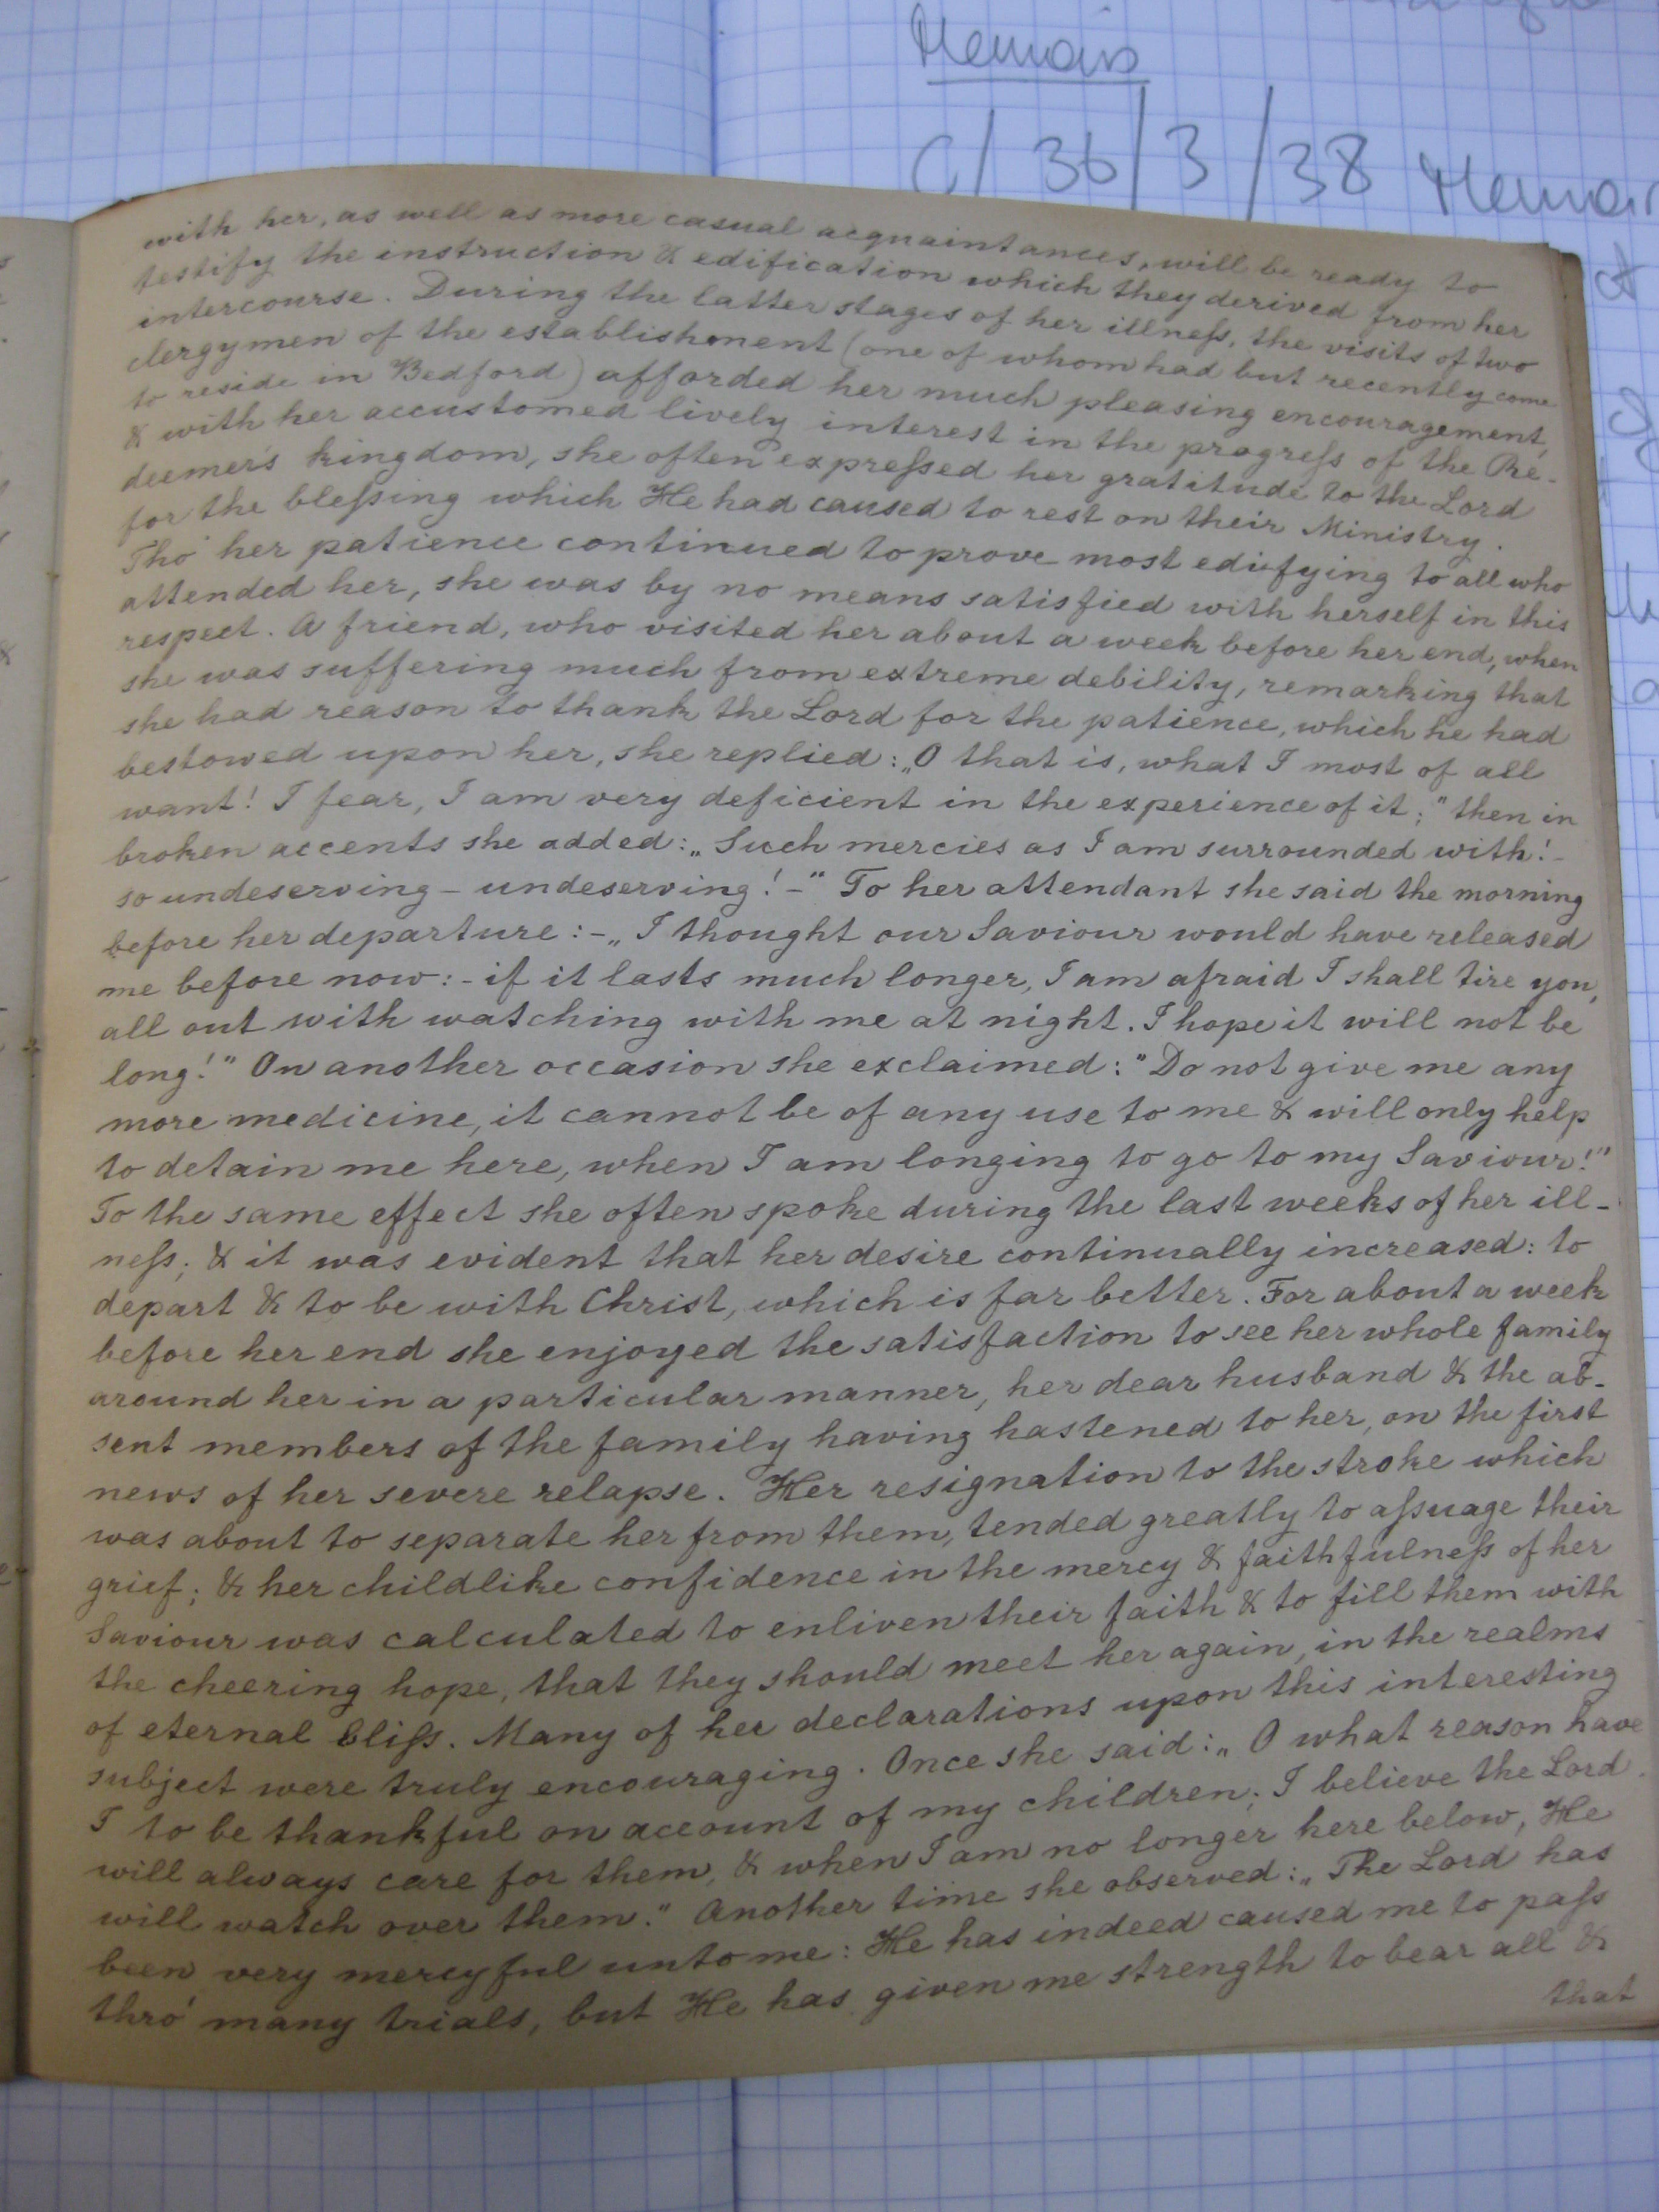 Memoirs
C/36/3/38 Memoir
with her, as well as more casual acquaintances, will be ready to
testify the instruction & edification which they derived from her
intercourse. During the latter stages of her illneſs, the visits of two
clergymen of the establishment (one of whom had but recently come
to reside in Bedford) afforded her much pleasing encouragement,
& with her accustomed lively interest in the progreſs of the Re-
deemer's kingdom, she often expreſsed her gratitude to the Lord
for the bleſsing which He had caused to rest on their Ministry.
Tho' her patience continued to prove most edifying to all who
attended her, she was by no means satisfied with herself in this
respect. A friend, who visited her about a week before her end, when
she was suffering much from extreme debility, remarking that
she had reason to thank the Lord for the patience, which he had
bestowed upon her, she replied: „O that is, what I most of all
want! I fear, I am very deficient in the experience of it;" then in
broken accents she added: „Such mercies as I am surrounded with! -
so undeserving - undeserving! -" To her attendant she said the morning
before her departure: - „I thought our Saviour would have released
me before now: - if it lasts much longer, I am afraid I shall tire you,
all out with watching with me at night. I hope it will not be
long!" On another occasion she exclaimed: "Do not give me any
more medicine, it cannot be of any use to me & will only help
to detain me here, when I am longing to go to my Saviour!"
To the same effect she often spoke during the last weeks of her ill-
neſs; & it was evident that her desire continually increased: to
depart & to be with Christ, which is far better. For about a week
before her end she enjoyed the satisfaction to see her whole family
around her in a particular manner, her dear husband & the ab-
sent members of the family having hastened to her, on the first
news of her severe relapse. Her resignation to the stroke which
was about to separate her from them, tended greatly to aſsuage their
grief; & her childlike confidence in the mercy & faithfulneſs of her
Saviour was calculated to enliven their faith & to fill them with
the cheering hope, that they should meet her again, in the realms
of eternal bliſs. Many of her declarations upon this interesting
subject were truly encouraging. Once she said: „O what reason have
I to be thankful on account of my children; I believe the Lord
will always care for them, & when I am no longer here below, He
will watch over them." Another time she observed: „The Lord has
been very mercyful unto me: He has indeed caused me to paſs
thro' many trials, but He has given me strength to bear all &
that